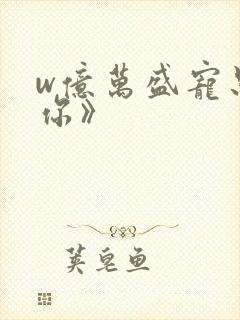 w億萬盛寵
你》
荚皂鱼